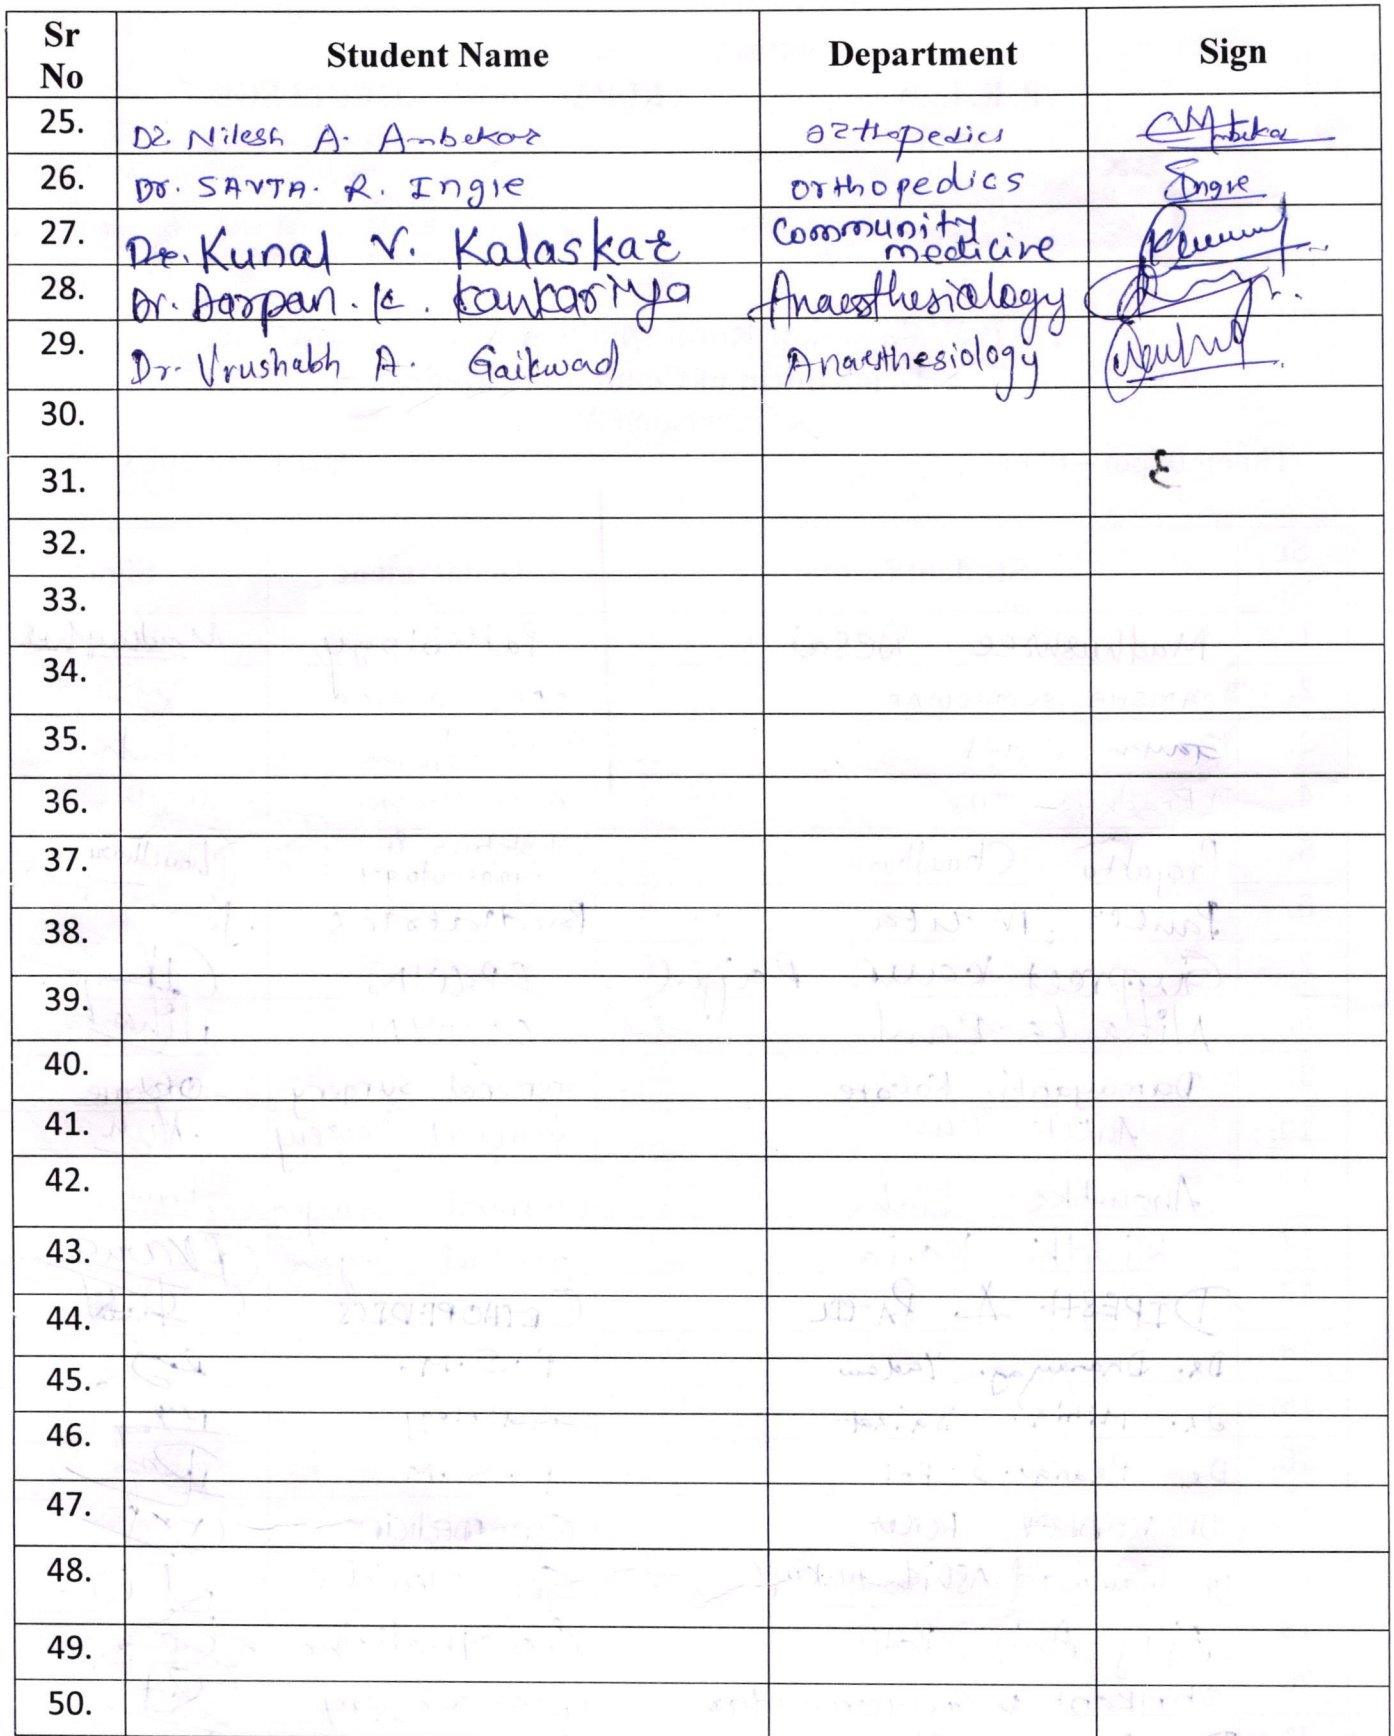 Sr No Student Name Department Sign
25. Dr. Nilesh A. Ambekar orthopedics Ambekar
26. Dr. SAVTA. R. Ingle orthopedics Ingle
27. Dr. Kunal V. Kalaskar Community medicine
28. Dr. Darpan. K. Kankariya Anaesthesiology
29. Dr. Vrushabh A. Gaikwad Anaesthesiology
30.
31.
32.
33.
34.
35.
36.
37.
38.
39.
40.
41.
42.
43.
44.
45.
46.
47.
48.
49.
50.